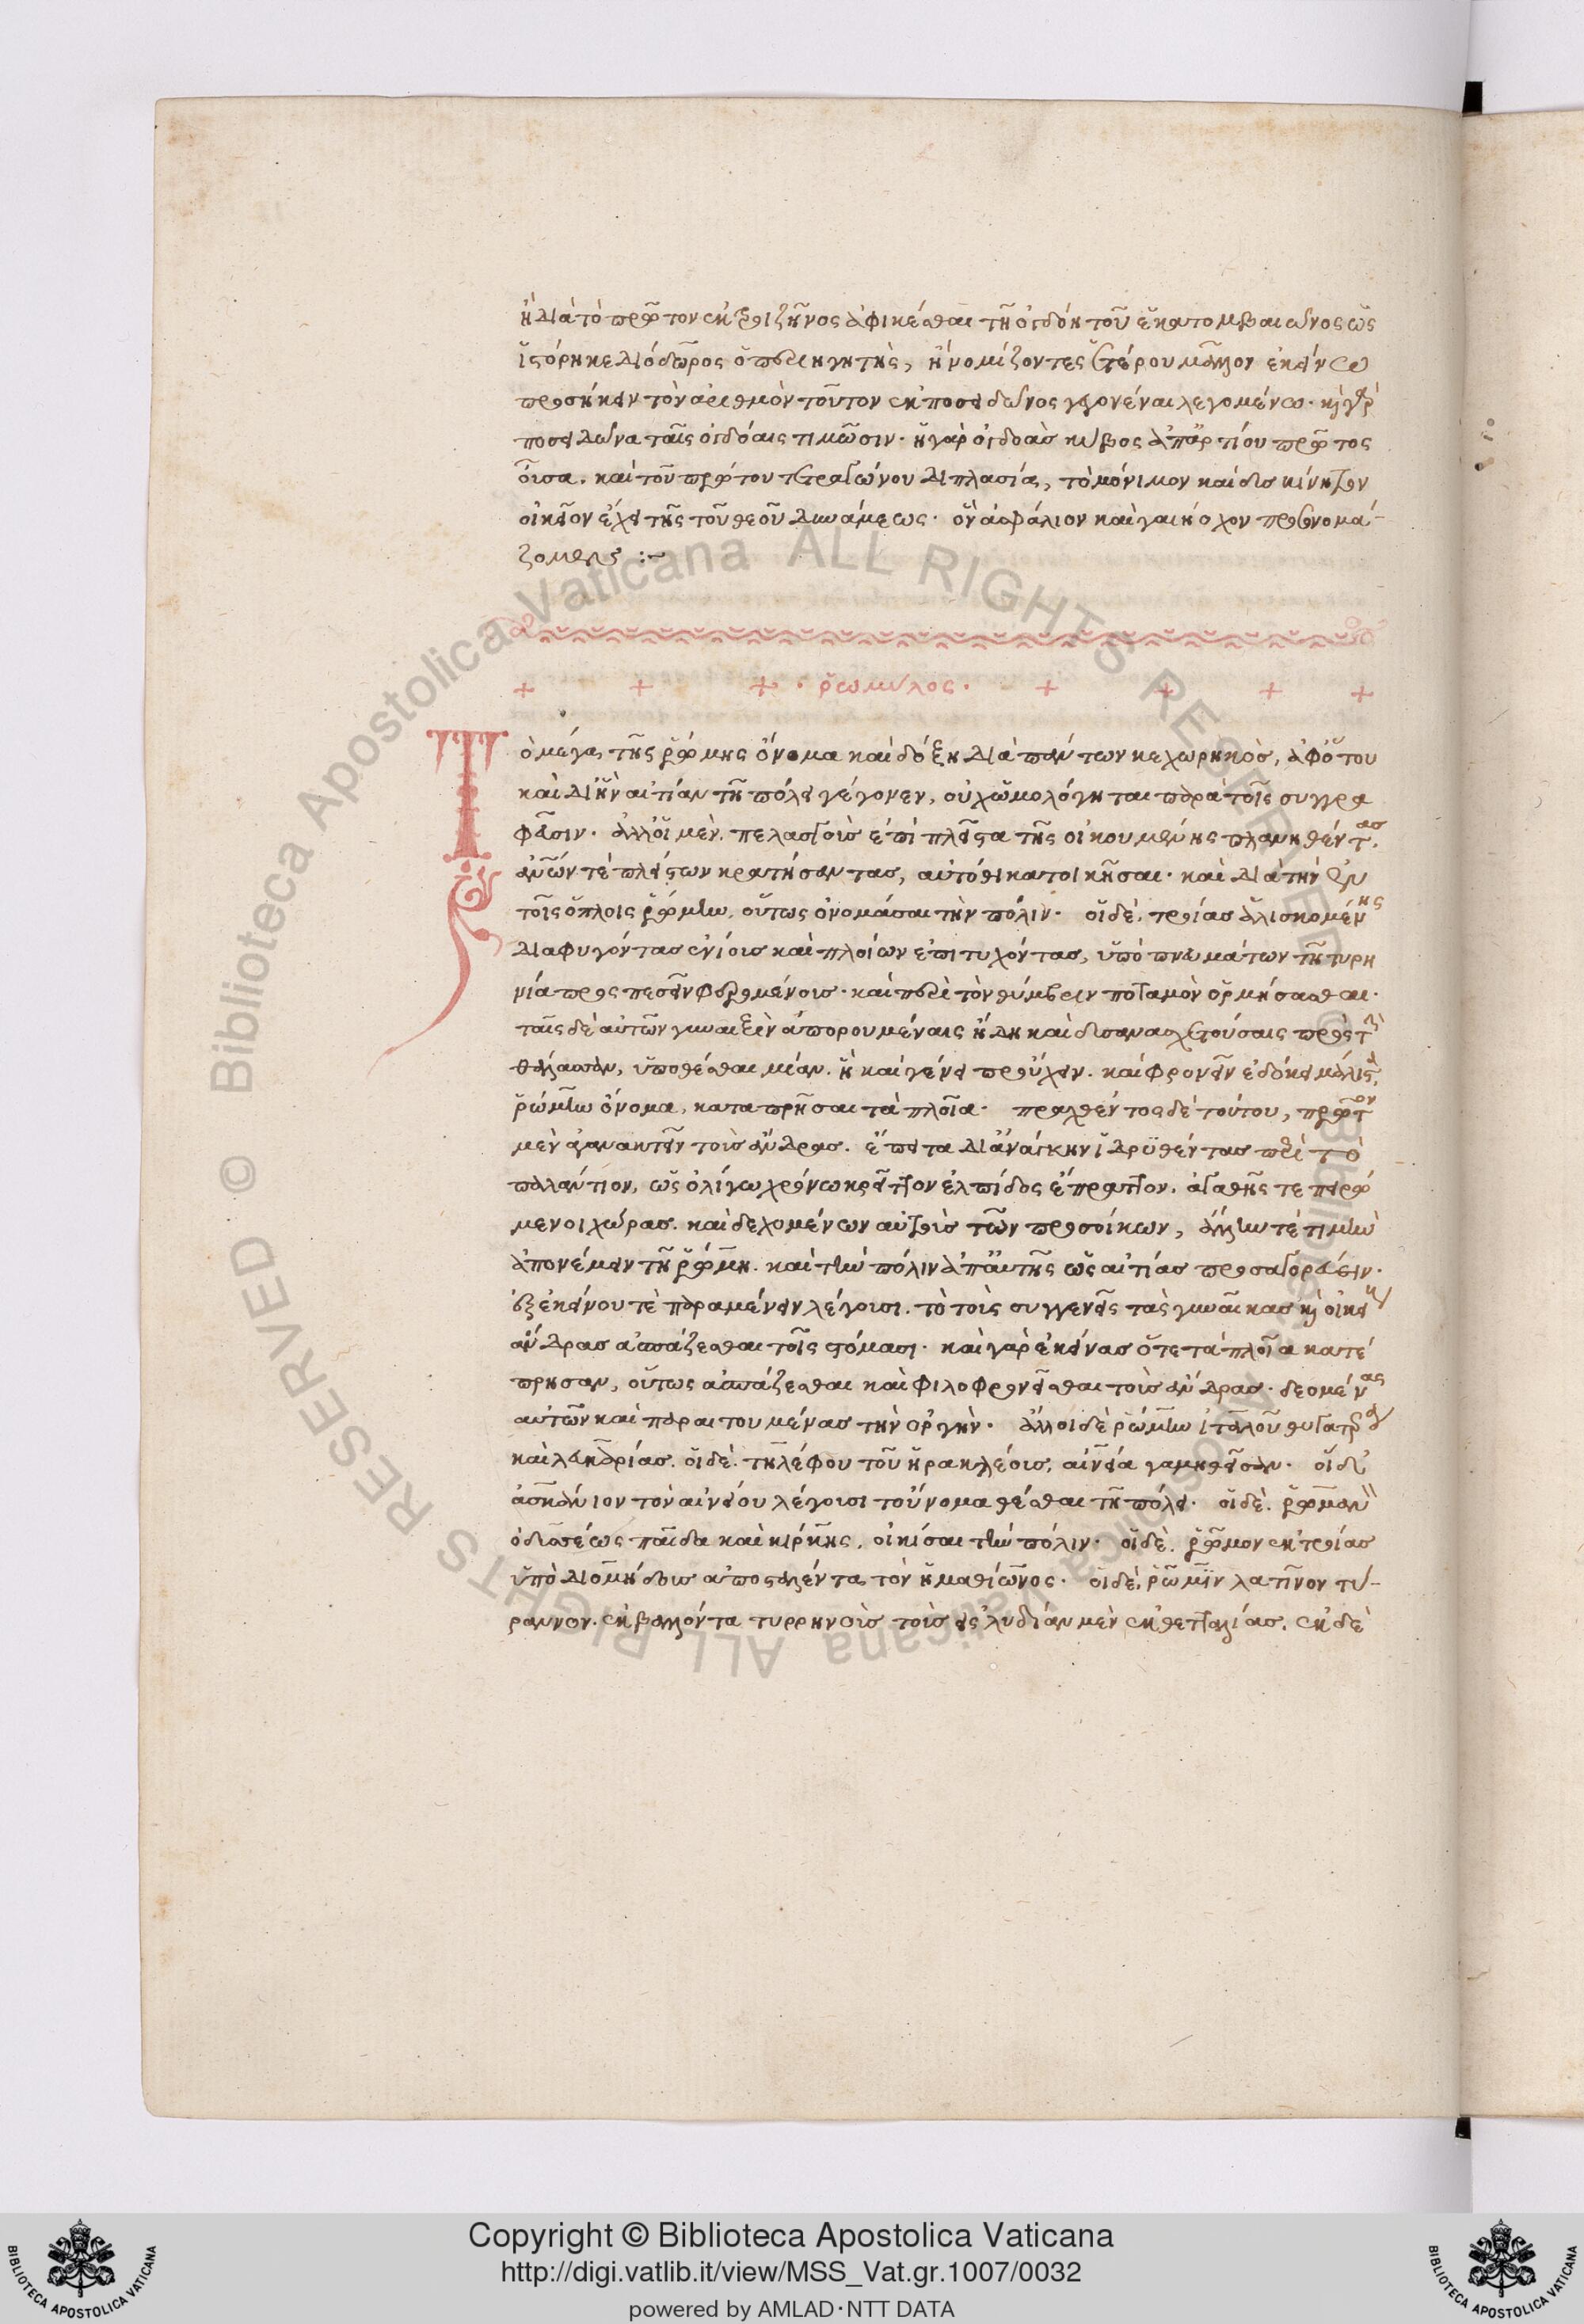 ἢ διὰ τὸ πρῶτον ἐκ τροιζῆνος ἀφικέσθαι τῇ ὀγδόῃ τοῦ ἑκατομβαιῶνος ὡς
ἱστόρηκε διόδωρος ὁ περιηγητής, ἢ νομίζοντες ἑτέρου μᾶλλον ἐκείνω
προσήκειν τὸν ἀριθμὸν τοῦτον ἐκ ποσειδῶνος γεγονέναι λεγομένω. καὶ γὰρ
ποσειδῶνα ταῖς ὀγδόαις τιμῶσιν. ἡ γὰρ ὀγδοὰς κύβος ἀπ' ἀρτίου πρῶτος
οὖσα. καὶ τοῦ πρώτου τετραγώνου διπλασία, τὸ μόνιμον καὶ δυσκίνητον
οἰκεῖον ἔχει τῆς τοῦ θεοῦ δυνάμεως. ὃν ἀσφάλιον καὶ γαιήοχον προσονομά-
ζομεν :~
ῥωμύλος.
Τὸ μέγα τῆς ῥώμης ὄνομα καὶ δόξη διὰ πάντων κεχωρηκὸς, ἀφ' ὅτου
καὶ δι' ἣν αἰτίαν τῇ πόλει γέγονεν, οὐχ ὡμολόγηται παρὰ τοῖς συγγρα
φεῦσιν. ἀλλ' οἱ μὲν. πελασγοὺς ἐπὶ πλεῖστα τῆς οἰκουμένης πλανηθέντας.
ἀνθρώπων τὲ πλείστων κρατήσαντας, αὐτόθι κατοικῆσαι. καὶ διὰ τὴν ἐν
τοῖς ὅπλοις ῥώμην, οὕτως ὀνομάσαι τὴν πόλιν. οἱ δὲ. τροίας ἁλισκομένης
διαφυγόντας ἐνίους καὶ πλοίων ἐπιτυχόντας, ὑπὸ πνευμάτων τῇ τυρη
νία προσπεσεῖν φερομένους. καὶ περὶ τὸν θύμβριν ποταμὸν ὁρμήσασθαι.
ταῖς δὲ αὐτῶν γυναιξὶν ἀπορουμέναις ἤδη καὶ δυσανασχετούσαις πρὸς τὴν
θάλασσαν, ὑποθέσθαι μίαν. ἣ καὶ γένει προὔχειν. καὶ φρονεῖν ἐδόκει μάλιστα.
ῥώμην ὄνομα, καταπρῆσαι τὰ πλοῖα. πραχθέντος δὲ τούτου, πρῶτον
μὲν ἀγανακτεῖν τοὺς ἄνδρας. ἔπειτα δι' ἀνάγκην ἱδρυθέντας περὶ τὸ
παλάντιον, ὡς ὀλίγω χρόνω κρεῖττον ἐλπίδος ἔπραττον. ἀγαθῆς τε πειρώ
μενοι χώρας. καὶ δεχομένων αὐτοὺς τῶν προσοίκων, ἄλλην τὲ τιμὴν
ἀπονέμειν τῇ ῥώμη. καὶ τὴν πόλιν ἀπ' αὐτῆς ὡς αἰτίας προσαγορεύειν.
ἐξ ἐκείνου τὲ παραμένειν λέγουσι. τὸ τοὺς συγγενεῖς τὰς γυναῖκας καὶ οἰκείους
ἄνδρας ἀσπάζεσθαι τοῖς στόμασι. καὶ γὰρ ἐκείνας ὅτε τὰ πλοῖα κατέ
πρησαν, οὕτως ἀσπάζεσθαι καὶ φιλοφρονεῖσθαι τοὺς ἄνδρας. δεομένας
αὐτῶν καὶ παραιτουμένας τὴν ὀργήν. ἄλλοι δὲ ῥώμην ἰταλοῦ θυγατέρα
καὶ λευκαρίας. οἱ δὲ. τηλέφου τοῦ ἡρακλέους, αἰνεία γαμηθεῖσαν. οἱ δ'
ἀσκανίου τοῦ αἰνείου λέγουσι τοὔνομα θέσθαι τῇ πόλει. οἱ δὲ. ῥωμανὸν
ὀδυσσέως παῖδα καὶ κίρκης, οἰκίσαι τὴν πόλιν. οἱ δὲ. ῥῶμον ἐκ τροίας
ὑπὸ διομήδους ἀποσταλέντα τὸν ἠμαθίωνος. οἱ δὲ. ῥῶμιν λατῖνον τύ-
ραννον. ἐκβαλόντα τυρρηνοὺς τοὺς εἰς λυδίαν μὲν ἐκ θετταλίας. ἐκ δὲ
Copyright © Biblioteca Apostolica Vaticana
http://digi.vatlib.it/view/MSS_Vat.gr.1007/0032
powered by AMLAD·NTT DATA
BIBLIOTECA APOSTOLICA VATICANA
BIBLIOTECA APOSTOLICA VATICANA
Biblioteca Apostolica Vaticana ALL RIGHTS RESERVED ©
Biblioteca Apostolica Vaticana ALL RIGHTS RESERVED ©